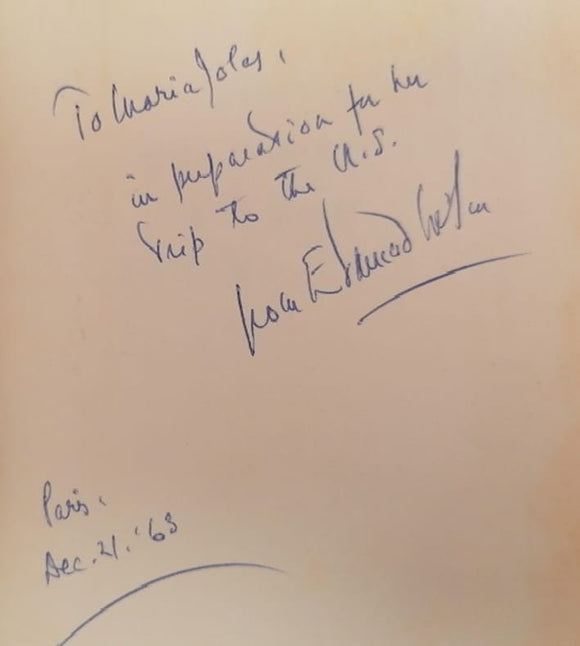 To Maria Jolas,
in preparation for her
trip to the U.S.
from Edmund Wilson
Paris.
Dec. 21. '63